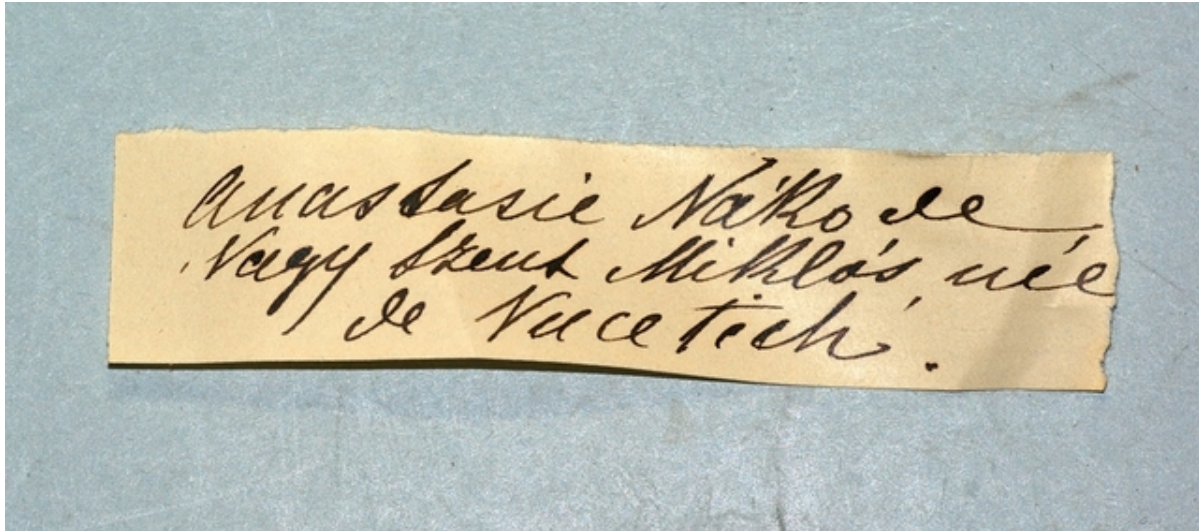 Anastasie Nákó de
Nagy Szent Miklós, née
de Vucetich.